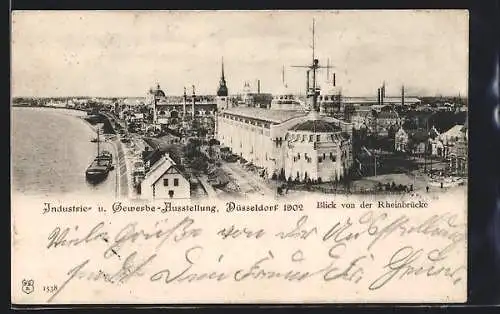 Industrie- u. Gewerbe-Ausstellung, Düsseldorf 1902 Blick von der Rheinbrücke
Viele Grüße von der Ausstellung
Dein Freund
1538